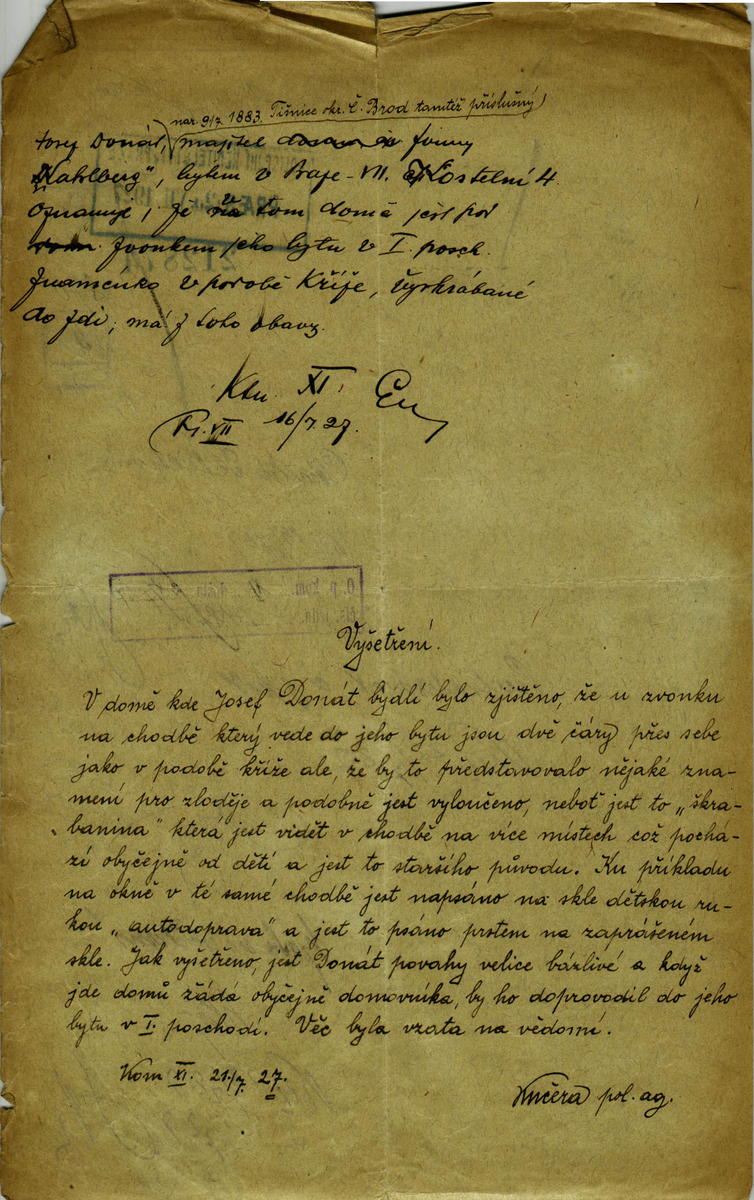 nar. 9/7. 1883. Tišnice okr. Č. Brod tamtéž příslušný
Josef Donát, majitel firmy
„Kahlberg", bytem v Praze - VII. Kostelní 4.
oznamuje, že v tom domě jest pod
zvonkem jeho bytu v I. posch.
znaménko v podobě kříže, vyškrábané
do zdi; má z toho obavy.
Kom. XI.
Pr. VII 16/7. 27.
O. p. kom.
Vyšetření.
V domě kde Josef Donát bydlí bylo zjištěno, že u zvonku
na chodbě který vede do jeho bytu jsou dvě čáry přes sebe
jako v podobě kříže ale, že by to představovalo nějaké zna-
mení pro zloděje a podobně jest vyloučeno, neboť jest to „škra-
banina" která jest vidět v chodbě na více místech což pochá-
zí obyčejně od dětí a jest to staršího původu. Ku příkladu
na okně v té samé chodbě jest napsáno na skle dětskou ru-
kou „autodoprava" a jest to psáno prstem na zaprášeném
skle. Jak vyšetřeno, jest Donát povahy velice bázlivé a když
jde domů žádá obyčejně domovníka, by ho doprovodil do jeho
bytu v I. poschodí. Věc byla vzata na vědomí.
Kom XI. 21./7. 27.
Kučera pol. ag.